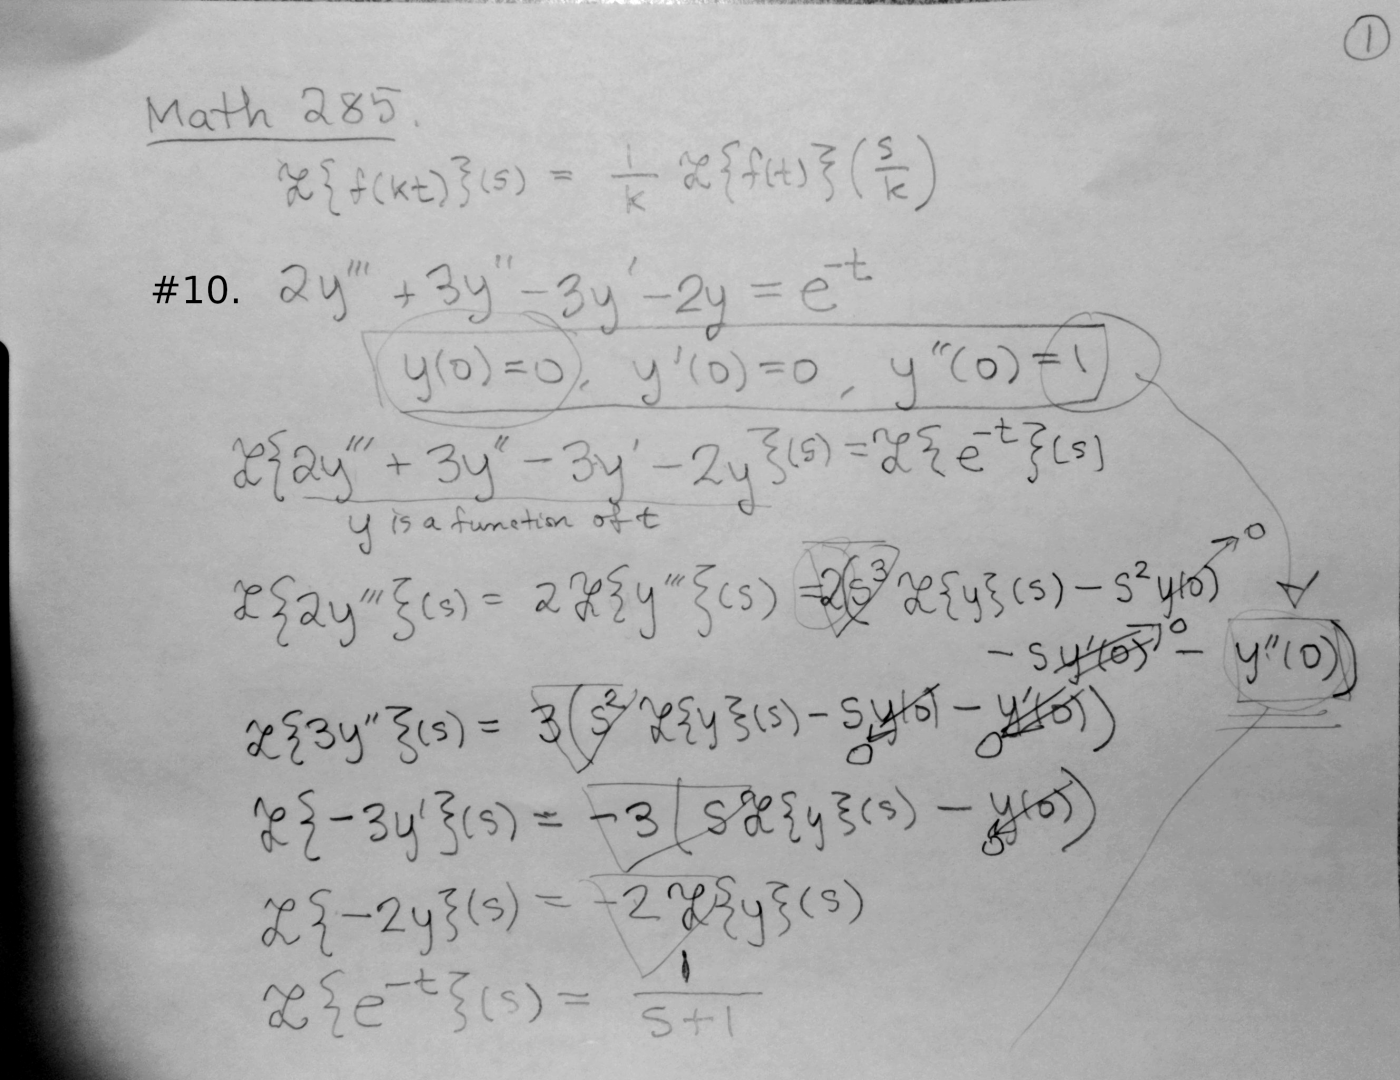 ①
Math 285.
ℒ{f(kt)}(s) = 1/k ℒ{f(t)}(s/k)
#10. 2y''' + 3y'' - 3y' - 2y = e^{-t}
y(0)=0, y'(0)=0, y''(0)=1
ℒ{2y''' + 3y'' - 3y' - 2y}(s) = ℒ{e^{-t}}(s)
y is a function of t
ℒ{2y'''}(s) = 2ℒ{y'''}(s) = 2(s³ ℒ{y}(s) - s²y(0) → 0
- sy'(0) → 0 - y''(0))
ℒ{3y''}(s) = 3(s² ℒ{y}(s) - sy(0) - y'(0))
0 0
ℒ{-3y'}(s) = -3(sℒ{y}(s) - y(0))
0
ℒ{-2y}(s) = -2ℒ{y}(s)
ℒ{e^{-t}}(s) = 1/(s+1)